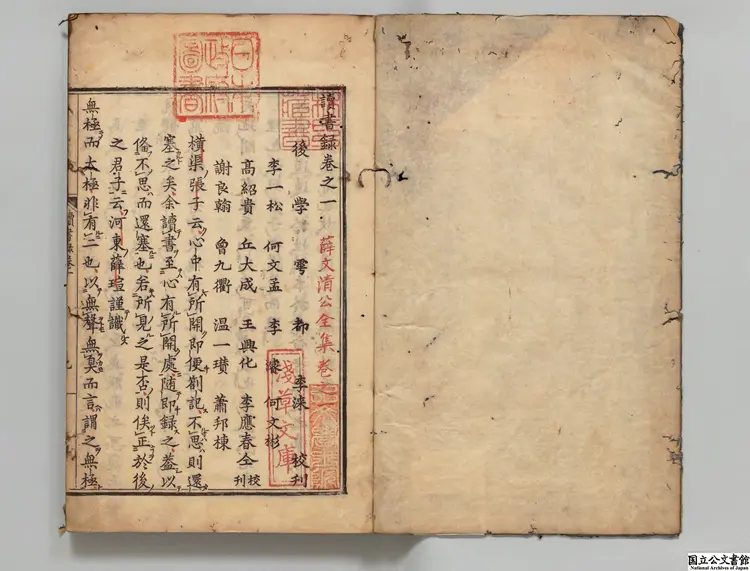 讀書録卷之一 薛文清公全集卷之
後學雩都李淶校刊
李一松 何文孟 李濬 何文彬
高紹貴 丘大成 王興化 李應春 仝校刊
謝良翰 曾九衢 温一瓚 蕭邦棟
横渠張子云心中有所開即便劄記不思則還
塞之矣余讀書至心有所開處隨即録之蓋以
偹不思而還塞也若所見之是否則俟正於後
之君子云河東薛瑄謹識
無極而太極非有二也以無聲無臭而言謂之無極
日本
政府
圖書
淺草文庫
国立公文書館
National Archives of Japan